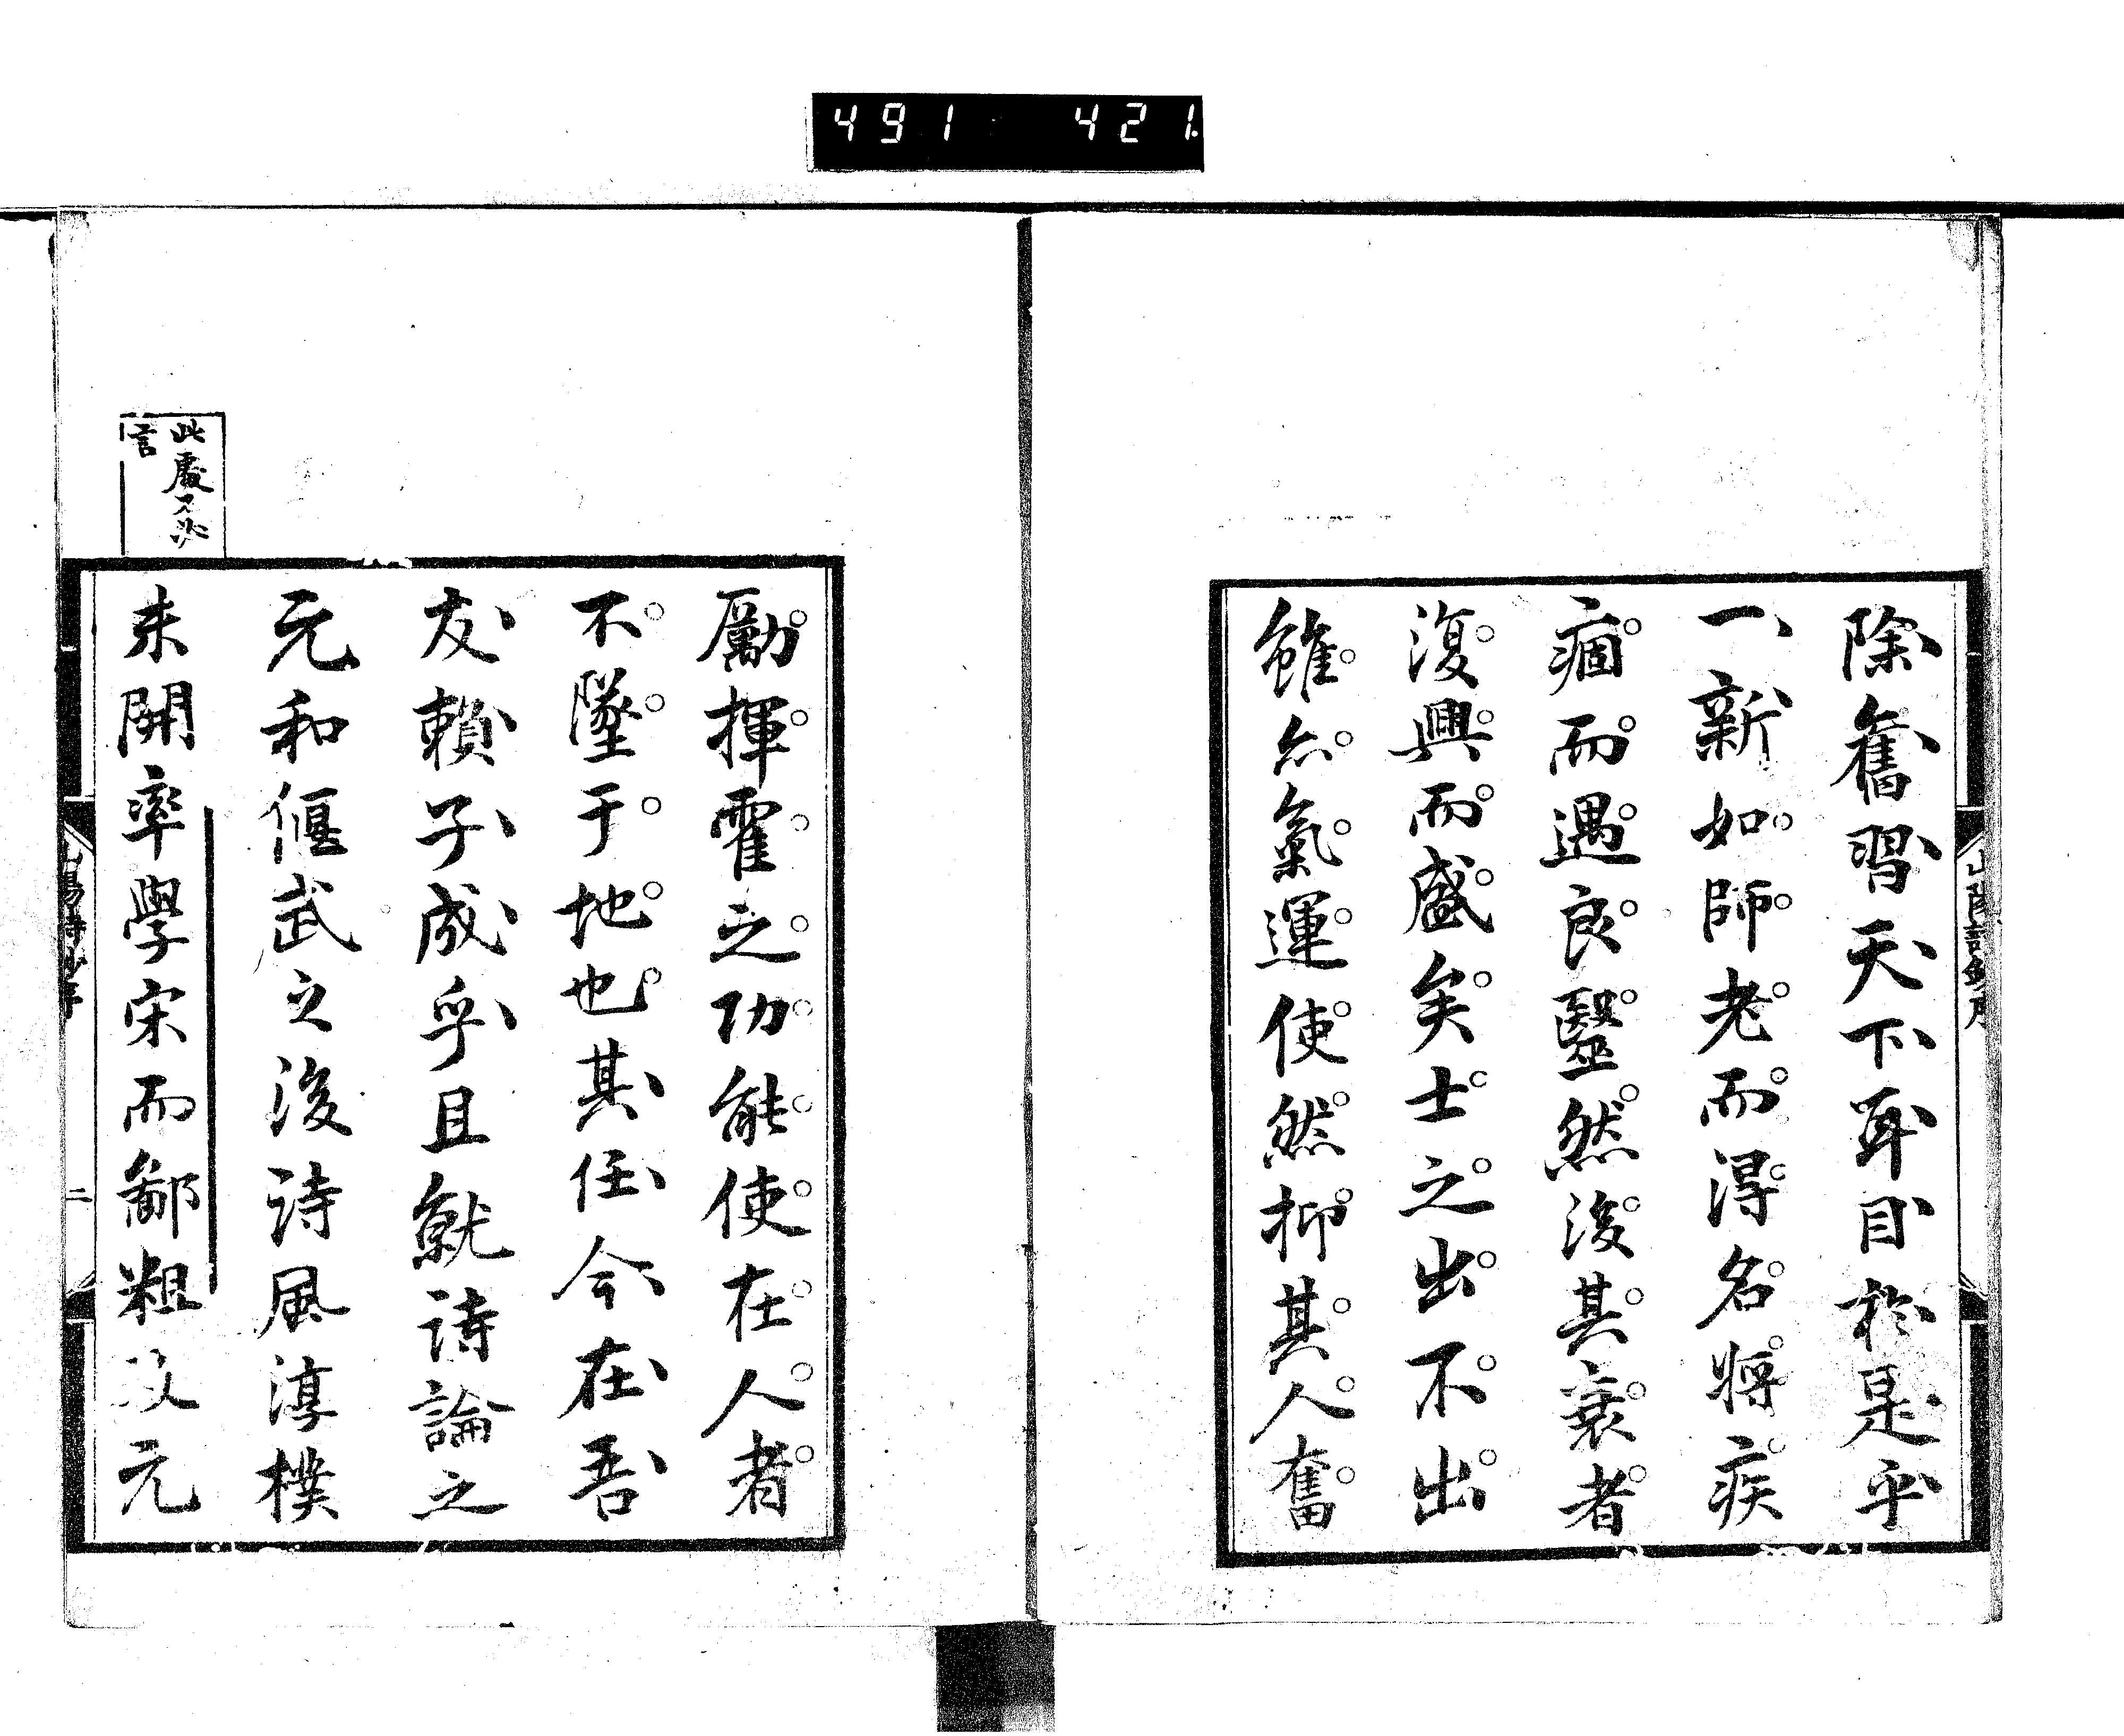 491 421
除舊習天下耳目於是乎
一新如師老而得名將疾
痼而遇良醫然後其衰者
復興而盛矣士之出不出
雖亦氣運使然抑其人奮
勵揮霍之功能使在人者
不墜于地也其任今在吾
友賴子成乎且就詩論之
元和偃武之後詩風淳樸
未開率學宋而鄙粗及元
此處不必
言
二